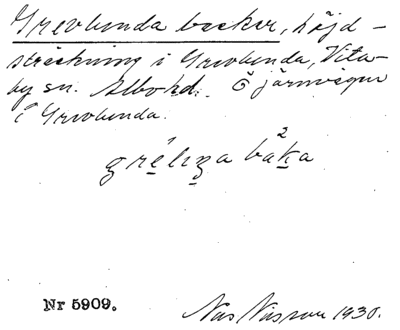 Grevlunda backar, höjd-
sträckning i Grevlunda, Vita-
by sn. Albo hd. Ö järnvägen
i Grevlunda.
2
Nr 5909.
Nils Nilsson 1930.